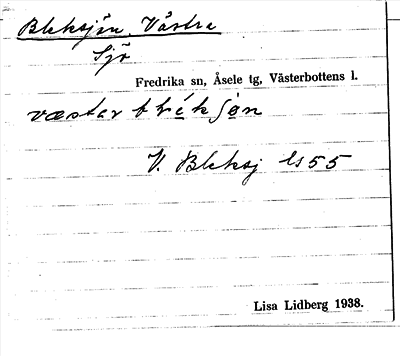 Bleksjön, Västra
Sjö
Fredrika sn, Åsele tg, Västerbottens l.
V. Bleksj ls 55
Lisa Lidberg 1938.